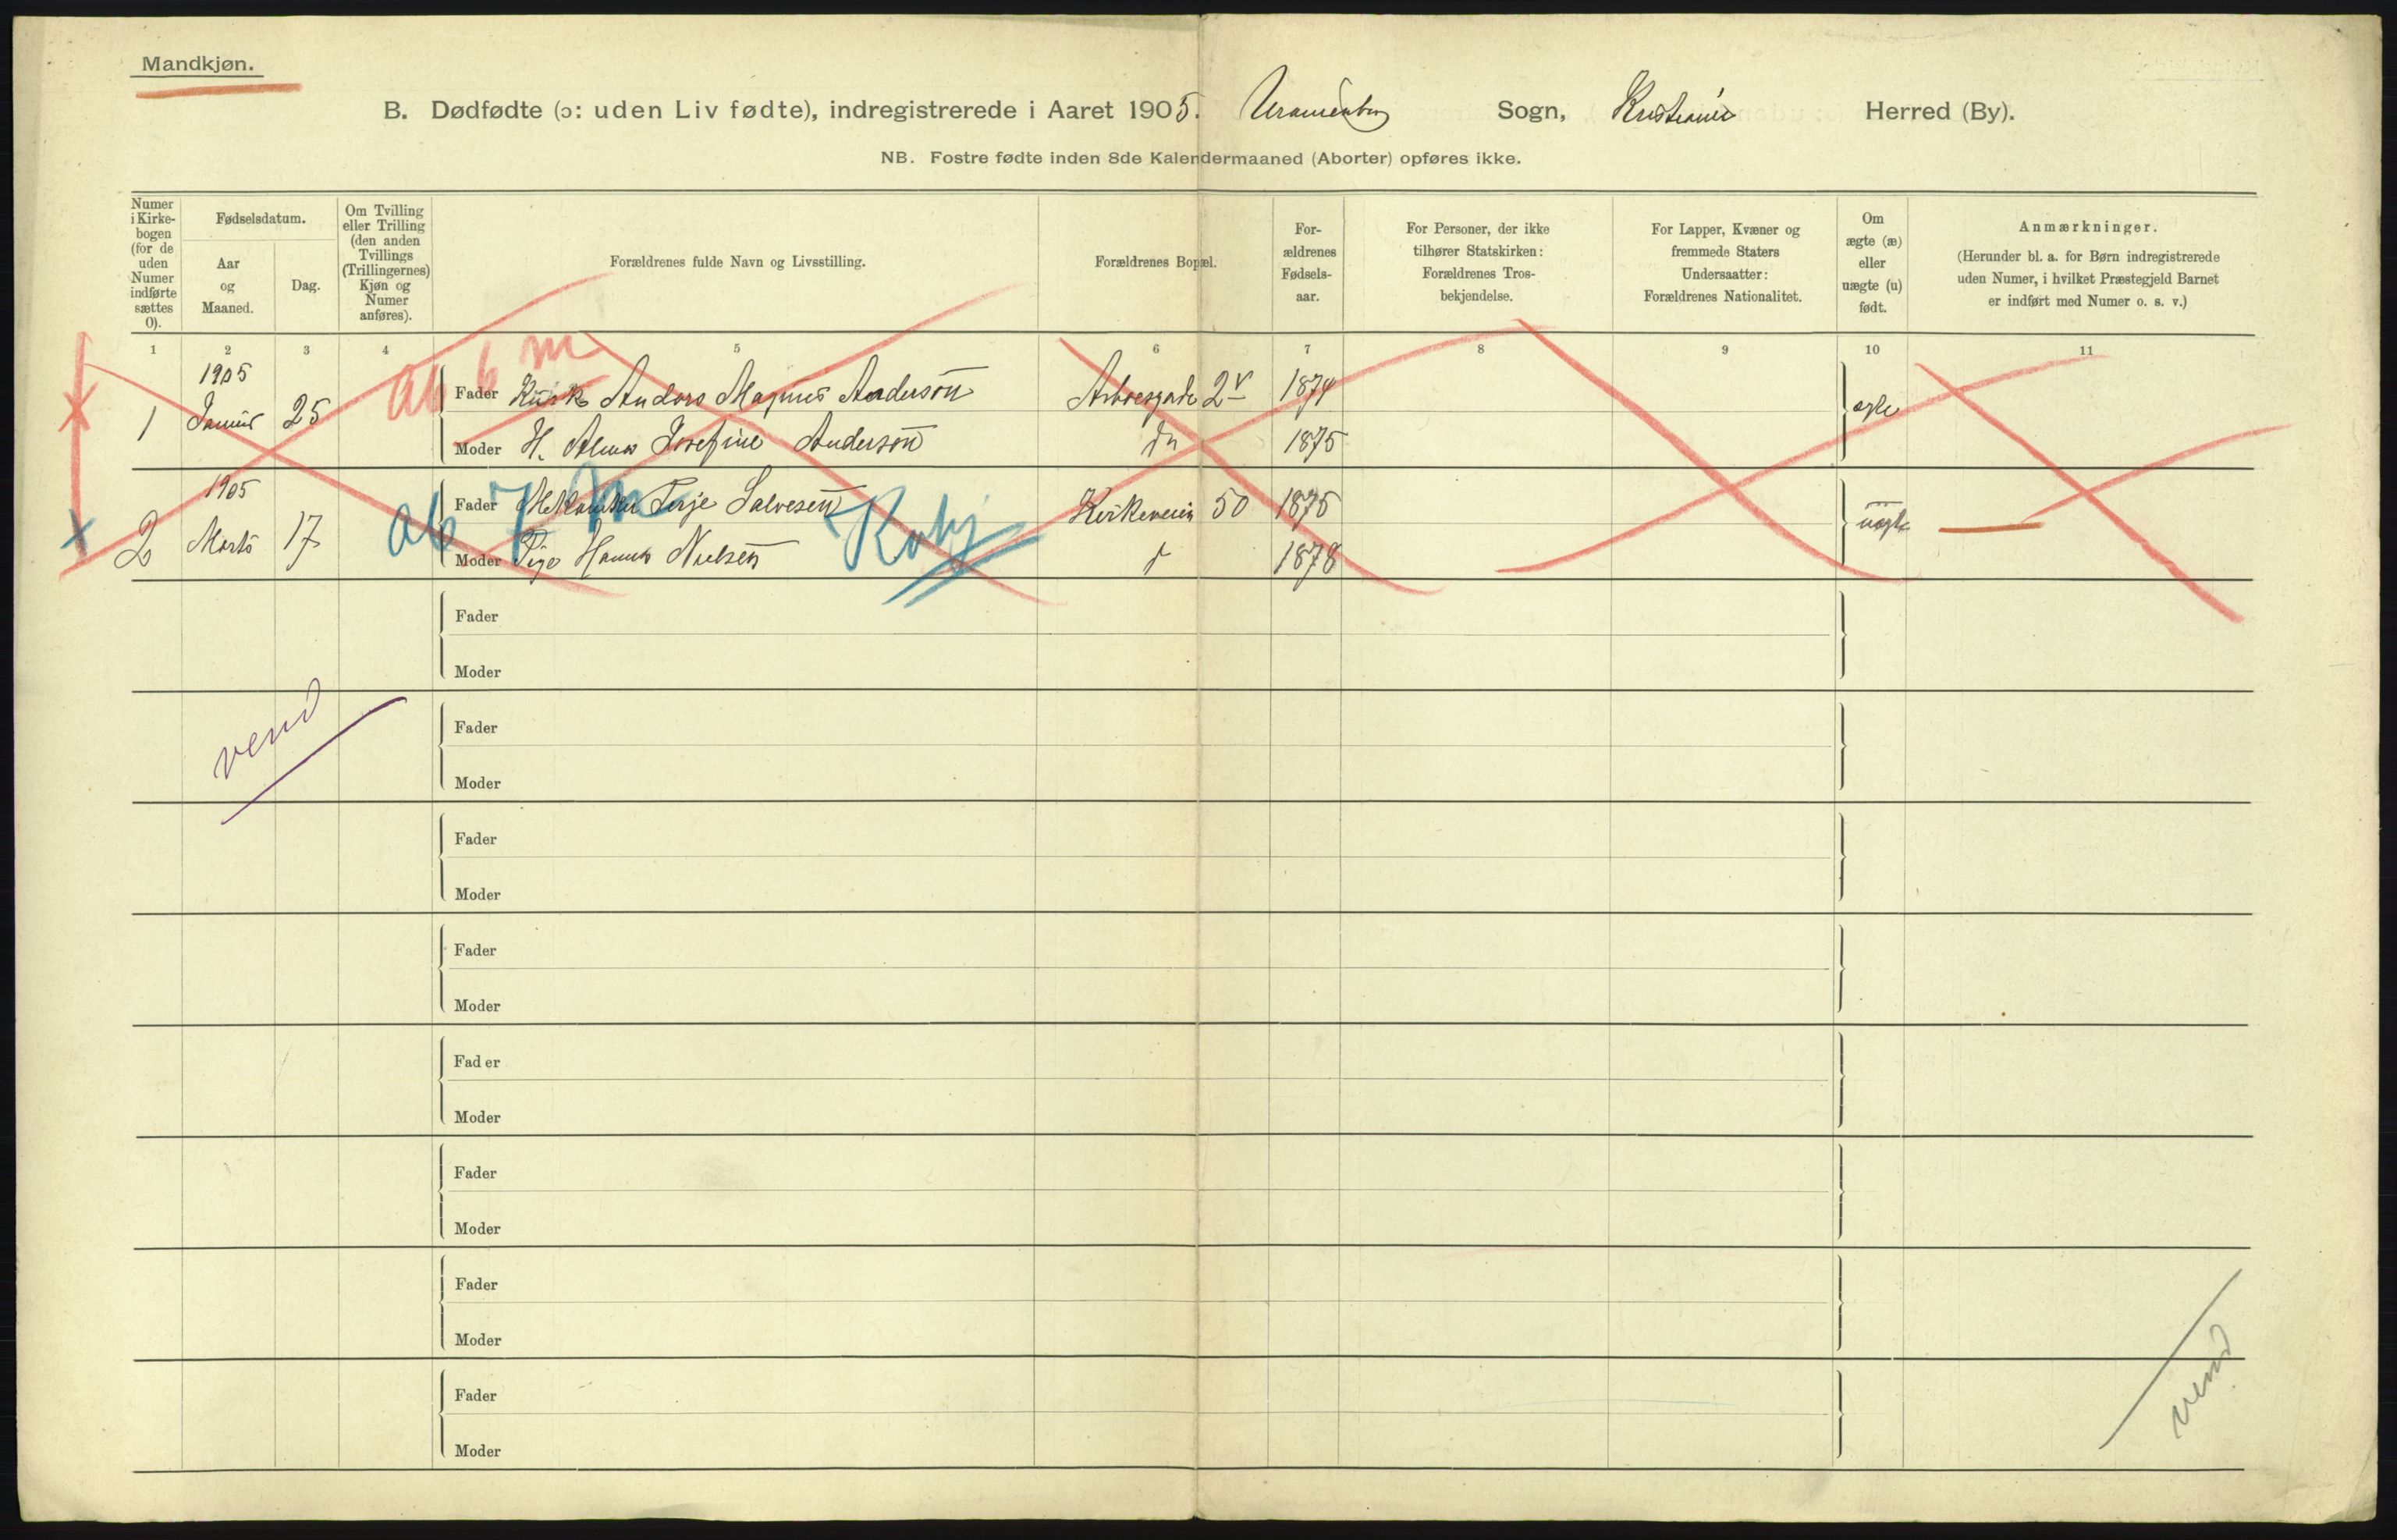 Mandkjøn.
B. Dødfødte (ɔ: uden Liv fødte), indregistrerede i Aaret 1905. Uranienborg Sogn, Kristiania Herred (By).
NB. Fostre fødte inden 8de Kalendermaaned (Aborter) opføres ikke.
Numer i Kirke-bogen (for de uden Numer indførte sættes 0).
Fødselsdatum.
Aar og Maaned.
Dag.
Om Tvilling eller Trilling (den anden Tvillings (Trillingernes) Kjøn og Numer anføres).
Forældrenes fulde Navn og Livsstilling.
Forældrenes Bopæl.
For-ældrenes Fødsels-aar.
For Personer, der ikke tilhører Statskirken: Forældrenes Tros-bekjendelse.
For Lapper, Kvæner og fremmede Staters Undersaatter: Forældrenes Nationalitet.
Om ægte (æ) eller uægte (u) født.
Anmærkninger.
(Herunder bl. a. for Børn indregistrerede uden Numer, i hvilket Præstegjeld Barnet er indført med Numer o. s. v.)
1 2 3 4 5 6 7 8 9 10 11
ab 6 m
1905
1 Januar 25 Fader Kusk Anders Magnus Anderson 2 1874 ægte
Moder H. Alma Josefine Anderson do 1875
ab 7 m
1905
2 Marts 17 Fader Mekaniker Terje Salvesen Kirkeveien 50 1875 uægte
Moder Pige Hanna Nielsen 1878
Fader
Moder
vend
Fader
Moder
Fader
Moder
Fader
Moder
Fader
Moder
Fader
Moder
Fader
Moder
Fader
Moder
vend